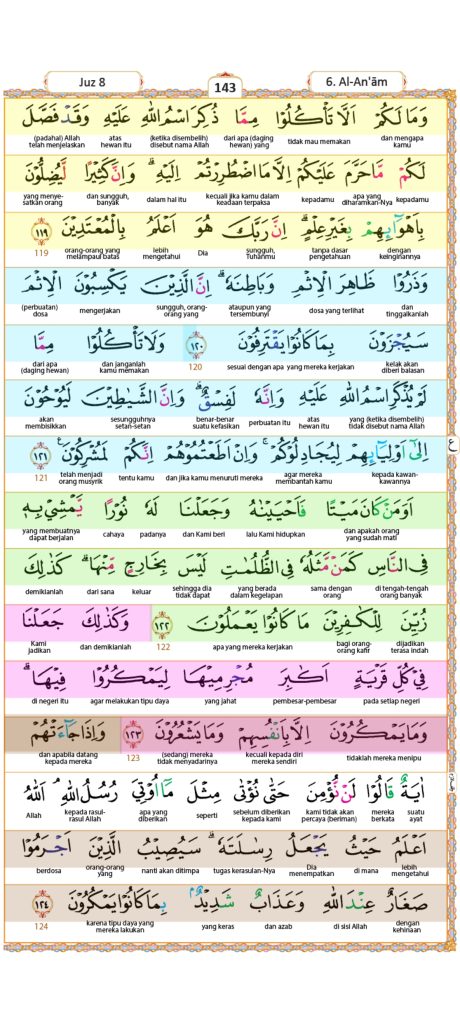 Juz 8
143
6. Al-An'ām
وَمَا لَكُمْ اَلَّا تَأْكُلُوْا مِمَّا ذُكِرَ اسْمُ اللّٰهِ عَلَيْهِ وَقَدْ فَصَّلَ
dan mengapa kamu
tidak mau memakan
dari apa (daging hewan) yang
(ketika disembelih) disebut nama Allah
atas hewan itu
(padahal) Allah telah menjelaskan
لَكُمْ مَّا حَرَّمَ عَلَيْكُمْ اِلَّا مَا اضْطُرِرْتُمْ اِلَيْهِ ۗوَاِنَّ كَثِيْرًا لَّيُضِلُّوْنَ
kepadamu
apa yang diharamkan-Nya
kepadamu
kecuali jika kamu dalam keadaan terpaksa
dalam hal itu
dan sungguh, banyak
yang menye-satkan orang
بِاَهْوَاۤىِٕهِمْ بِغَيْرِ عِلْمٍ ۗاِنَّ رَبَّكَ هُوَ اَعْلَمُ بِالْمُعْتَدِيْنَ ١١٩
dengan keinginannya
tanpa dasar pengetahuan
sungguh, Tuhanmu
Dia
lebih mengetahui
orang-orang yang melampaui batas
119
وَذَرُوْا ظَاهِرَ الْاِثْمِ وَبَاطِنَهٗ ۗاِنَّ الَّذِيْنَ يَكْسِبُوْنَ الْاِثْمَ
dan tinggalkanlah
dosa yang terlihat
ataupun yang tersembunyi
sungguh, orang-orang yang
mengerjakan
(perbuatan) dosa
سَيُجْزَوْنَ بِمَا كَانُوْا يَقْتَرِفُوْنَ ١٢٠ وَلَا تَأْكُلُوْا مِمَّا
kelak akan diberi balasan
sesuai dengan apa yang mereka kerjakan
120
dan janganlah kamu memakan
dari apa (daging hewan)
لَمْ يُذْكَرِ اسْمُ اللّٰهِ عَلَيْهِ وَاِنَّهٗ لَفِسْقٌۗ وَاِنَّ الشَّيٰطِيْنَ لَيُوْحُوْنَ
yang (ketika disembelih) tidak disebut nama Allah
atas hewan itu
perbuatan itu
benar-benar suatu kefasikan
sesungguhnya setan-setan
akan membisikkan
اِلٰٓى اَوْلِيَاۤىِٕهِمْ لِيُجَادِلُوْكُمْ ۚوَاِنْ اَطَعْتُمُوْهُمْ اِنَّكُمْ لَمُشْرِكُوْنَ ࣖ ١٢١
ع
kepada kawan-kawannya
agar mereka membantah kamu
dan jika kamu menuruti mereka
tentu kamu
telah menjadi orang musyrik
121
اَوَمَنْ كَانَ مَيْتًا فَاَحْيَيْنٰهُ وَجَعَلْنَا لَهٗ نُوْرًا يَّمْشِيْ بِهٖ
dan apakah orang yang sudah mati
lalu Kami hidupkan
dan Kami beri
padanya
cahaya
yang membuatnya dapat berjalan
فِى النَّاسِ كَمَنْ مَّثَلُهٗ فِى الظُّلُمٰتِ لَيْسَ بِخَارِجٍ مِّنْهَاۗ كَذٰلِكَ
di tengah-tengah orang banyak
sama dengan orang
yang berada dalam kegelapan
sehingga dia tidak dapat
keluar
dari sana
demikianlah
زُيِّنَ لِلْكٰفِرِيْنَ مَا كَانُوْا يَعْمَلُوْنَ ١٢٢ وَكَذٰلِكَ جَعَلْنَا
dijadikan terasa indah
bagi orang-orang kafir
apa yang mereka kerjakan
122
dan demikianlah
Kami jadikan
فِيْ كُلِّ قَرْيَةٍ اَكٰبِرَ مُجْرِمِيْهَا لِيَمْكُرُوْا فِيْهَاۗ
pada setiap negeri
pembesar-pembesar
yang jahat
agar melakukan tipu daya
di negeri itu
وَمَا يَمْكُرُوْنَ اِلَّا بِاَنْفُسِهِمْ وَمَا يَشْعُرُوْنَ ١٢٣ وَاِذَا جَاۤءَتْهُمْ
tidaklah mereka menipu
kecuali kepada diri mereka sendiri
(sedang) mereka tidak menyadarinya
123
dan apabila datang kepada mereka
اٰيَةٌ قَالُوْا لَنْ نُّؤْمِنَ حَتّٰى نُؤْتٰى مِثْلَ مَآ اُوْتِيَ رُسُلُ اللّٰهِ ۘ اَللّٰهُ
suatu ayat
mereka berkata
kami tidak akan percaya (beriman)
sebelum diberikan kepada kami
seperti
apa yang diberikan
kepada rasul-rasul Allah
Allah
اَعْلَمُ حَيْثُ يَجْعَلُ رِسٰلَتَهٗۗ سَيُصِيْبُ الَّذِيْنَ اَجْرَمُوْا
lebih mengetahui
di mana
Dia menempatkan
tugas kerasulan-Nya
nanti akan ditimpa
orang-orang yang
berdosa
صَغَارٌ عِنْدَ اللّٰهِ وَعَذَابٌ شَدِيْدٌۢ بِمَا كَانُوْا يَمْكُرُوْنَ ١٢٤
dengan kehinaan
di sisi Allah
dan azab
yang keras
karena tipu daya yang mereka lakukan
124